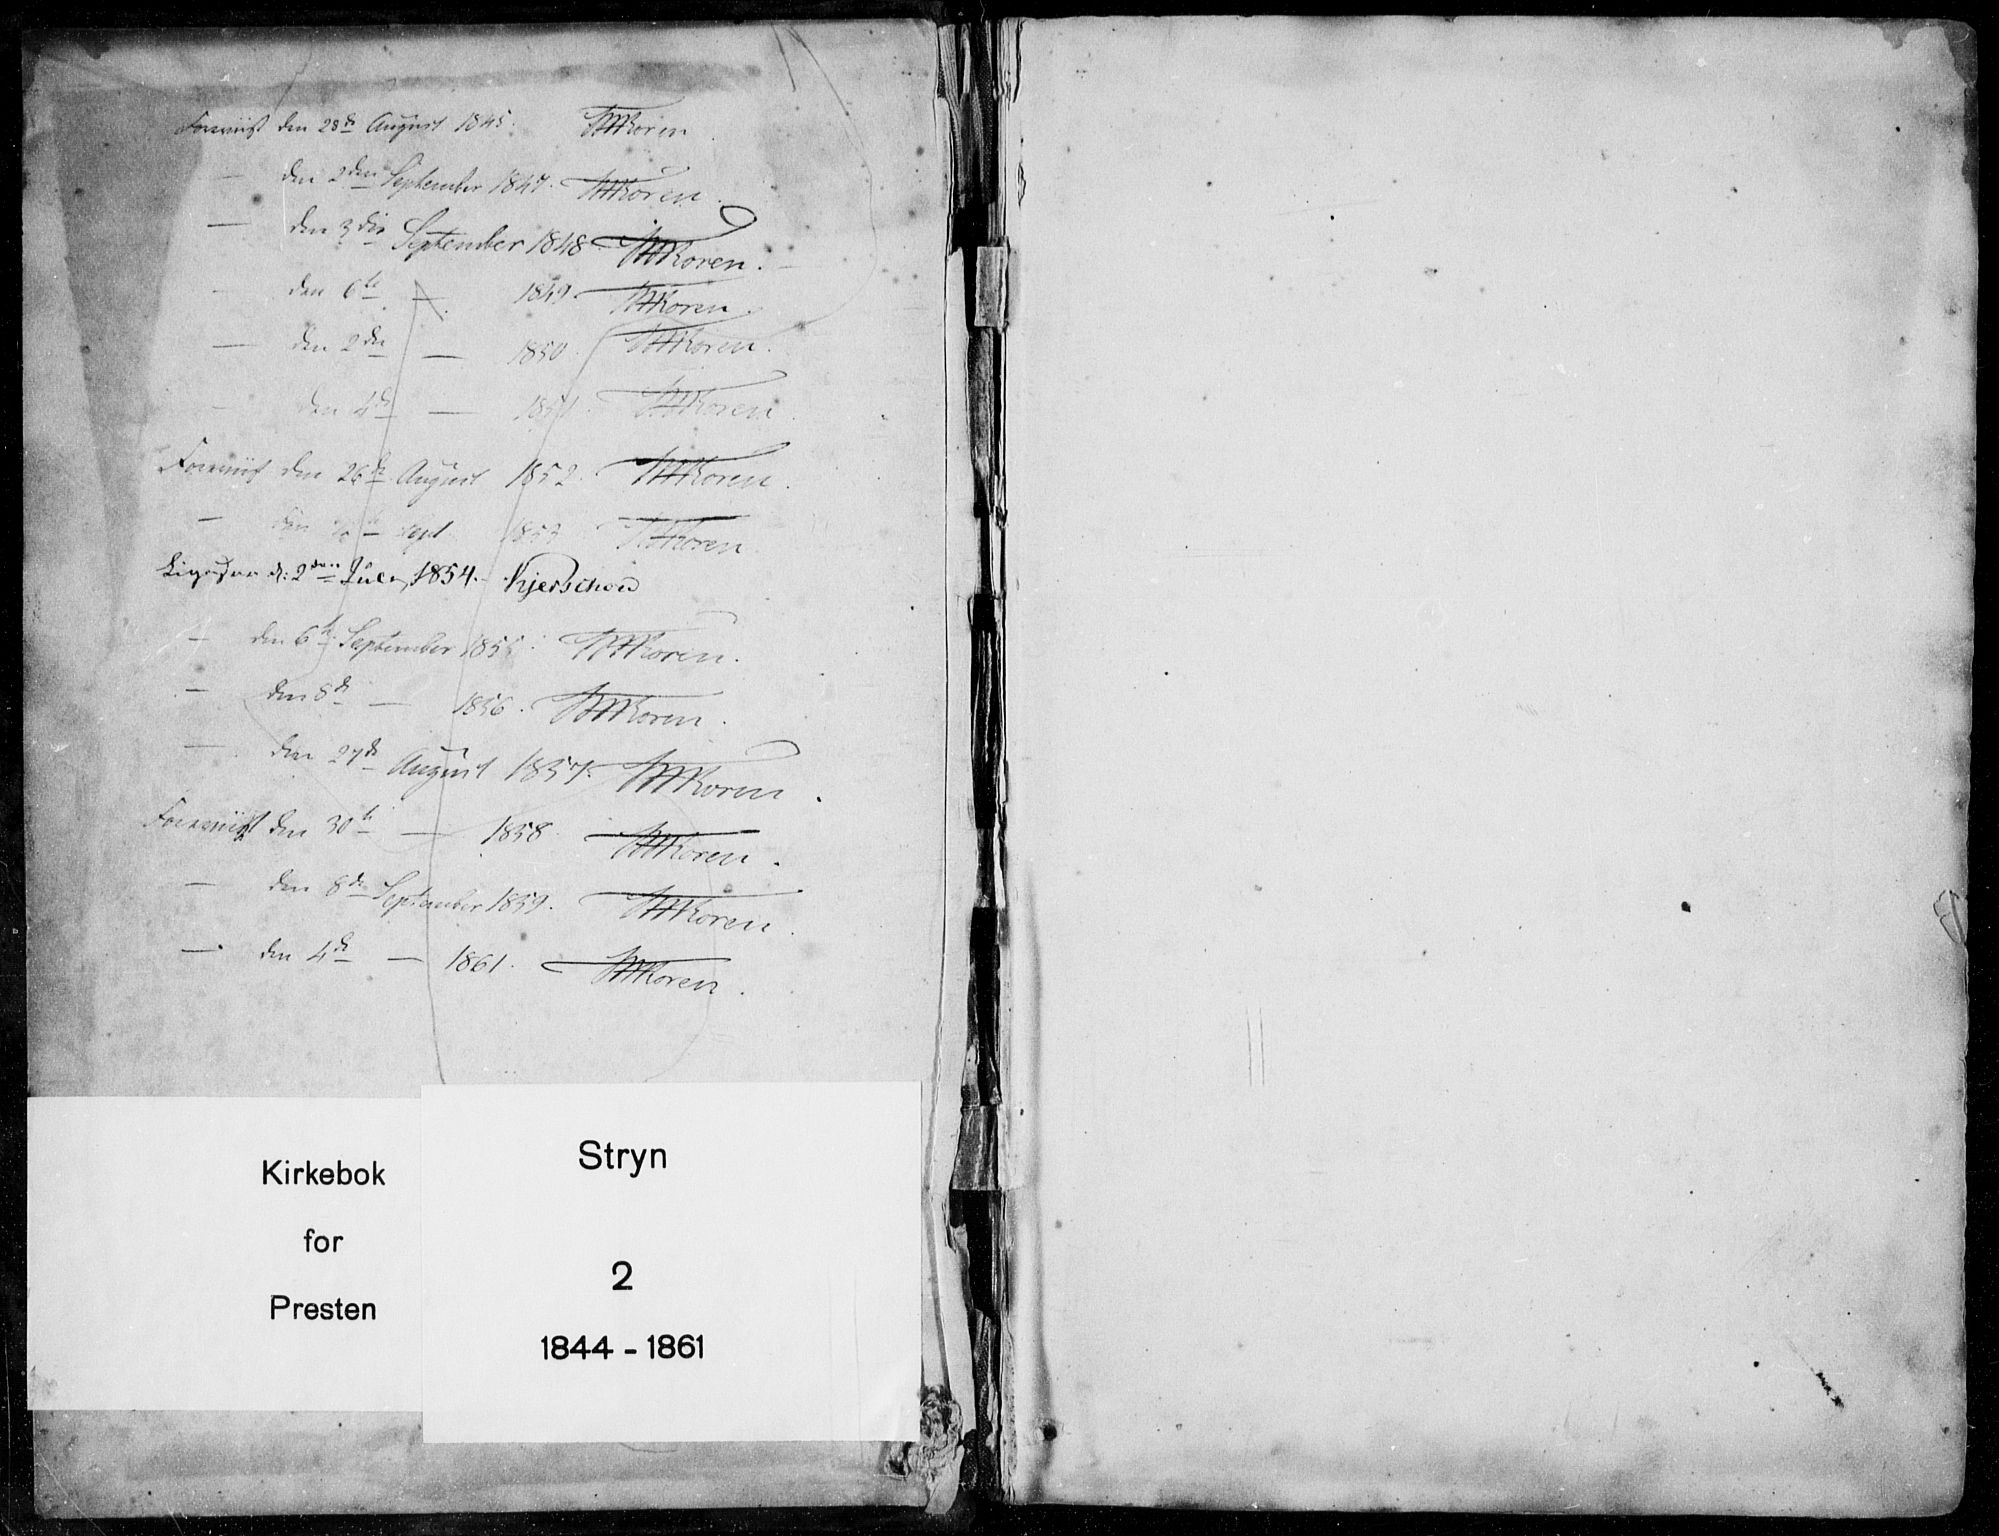 Foreviist den 28de August 1845. WMKoren
— den 2den September 1847. WMKoren.
— den 3die September 1848 WMKoren.
— den 6te — 1849. WMKoren.
— den 2den — 1850. WMKoren.
— den 4de — 1851. WMKoren.
Foreviist den 26de August 1852. WMKoren.
— den Sept. 1853 WMKoren.
Ligesaa d: 2den July 1854. Kjerschow
— den 6te September 1855. WMKoren.
— den 8de — 1856. WMKoren.
— den 27de August 1857. WMKoren.
Foreviist den 30te — 1858. WMKoren.
— den 8de September 1859. WMKoren.
— den 4de — 1861. WMKoren.
Kirkebok
for
Presten
Stryn
2
1844 - 1861